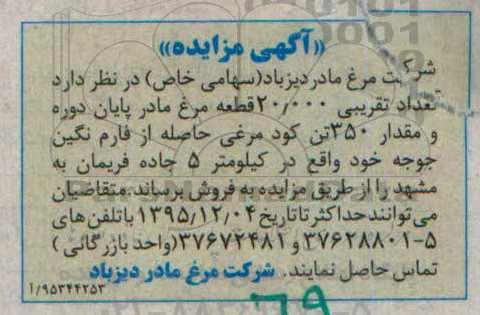 «آگهی مزایده»
شرکت مرغ مادر دیزباد(سهامی خاص) در نظر دارد
تعداد تقریبی ۲۰/۰۰۰قطعه مرغ مادر پایان دوره
و مقدار ۳۵۰تن کود مرغی حاصله از فارم نگین
جوجه خود واقع در کیلومتر ۵ جاده فریمان به
مشهد را از طریق مزایده به فروش برساند.متقاضیان
می‌توانند حداکثر تا تاریخ ۱۳۹۵/۱۲/۰۴ با تلفن های
۵-۳۷۶۲۸۸۰۱ و ۳۷۶۷۲۴۸۱(واحد بازرگانی)
تماس حاصل نمایند. شرکت مرغ مادر دیزباد
۱/۹۵۳۴۴۲۵۳